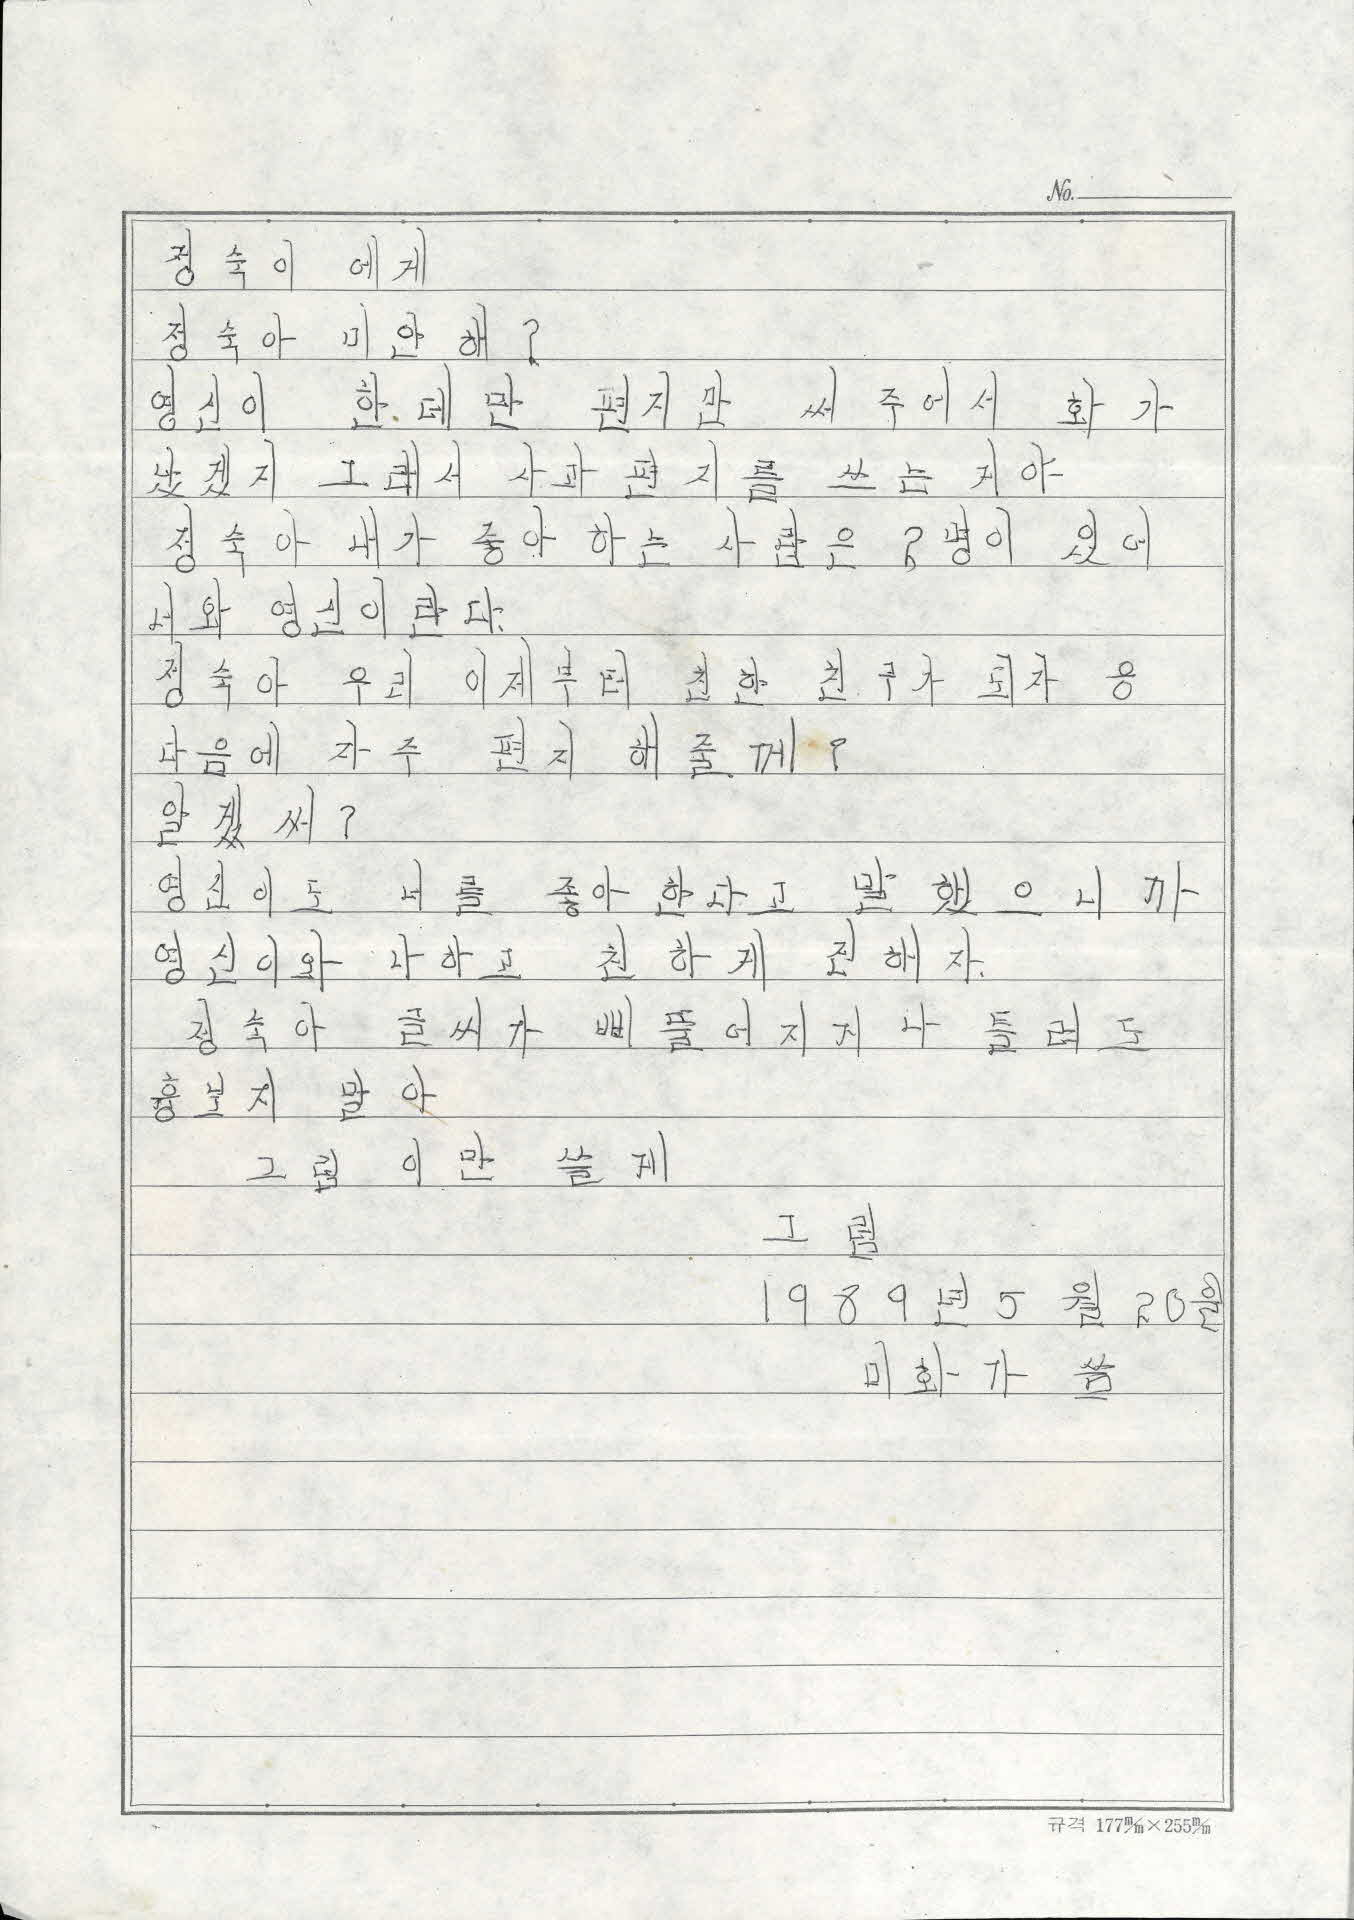 No.
정숙이 에게
정숙아 미안해?
영신이 한데만 편지만 써 주어서 화가
났겠지 그래서 사과편지를 쓰는 거야
정숙아 내가 좋아하는 사람은 2명이 있어
너와 영신이란다.
정숙아 우리 이제부터 친한 친구가 되자 응
다음에 자주 편지 해줄께?
알겠써?
영신이도 너를 좋아한다고 말했으니까
영신이와 나하고 친하게 전하자.
정숙아 글씨가 삐뚤어지거나 틀려도
흉보지 말아
그럼 이만 쓸게
그럼
1989년 5월 20일
미화가 씀
규격 177m/m×255m/m